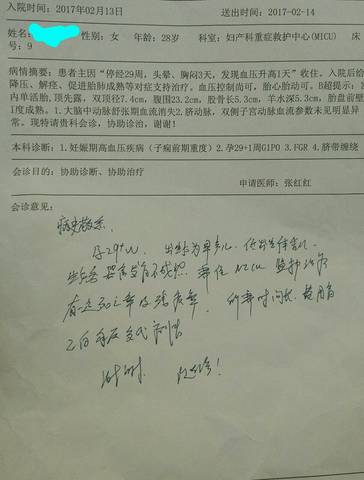 入院时间：2017年02月13日 送出时间：2017-02-14
姓名： 性别：女 年龄：28岁 科室：妇产科重症救护中心(MICU) 床
号：9
病情摘要：患者主因“停经29周、头晕、胸闷3天，发现血压升高1天”收住。入院后给
降压、解痉、促进胎肺成熟等对症支持治疗。血压控制尚可，胎心胎动可。B超提示：宫
内单活胎，顶先露，双顶径7.4cm，腹围23.2cm，股骨长5.3cm，羊水深5.3cm，胎盘前壁
I度成熟。1.大脑中动脉舒张期血流消失2.脐动脉，双侧子宫动脉血流参数未见明显异
常。现特请贵科会诊，协助诊治，谢谢！
本科诊断：1.妊娠期高血压疾病（子痫前期重度）2.孕29+1周G1P0 3.FGR 4.脐带缠绕
会诊目的：协助诊断、协助治疗
申请医师：张红红
会诊意见：
病史敬悉
孕29+W，出生为早产儿，低出生体重儿
生后各器官发育不成熟 NICU 监护治疗
有一定 率及 率 时间长 费用高